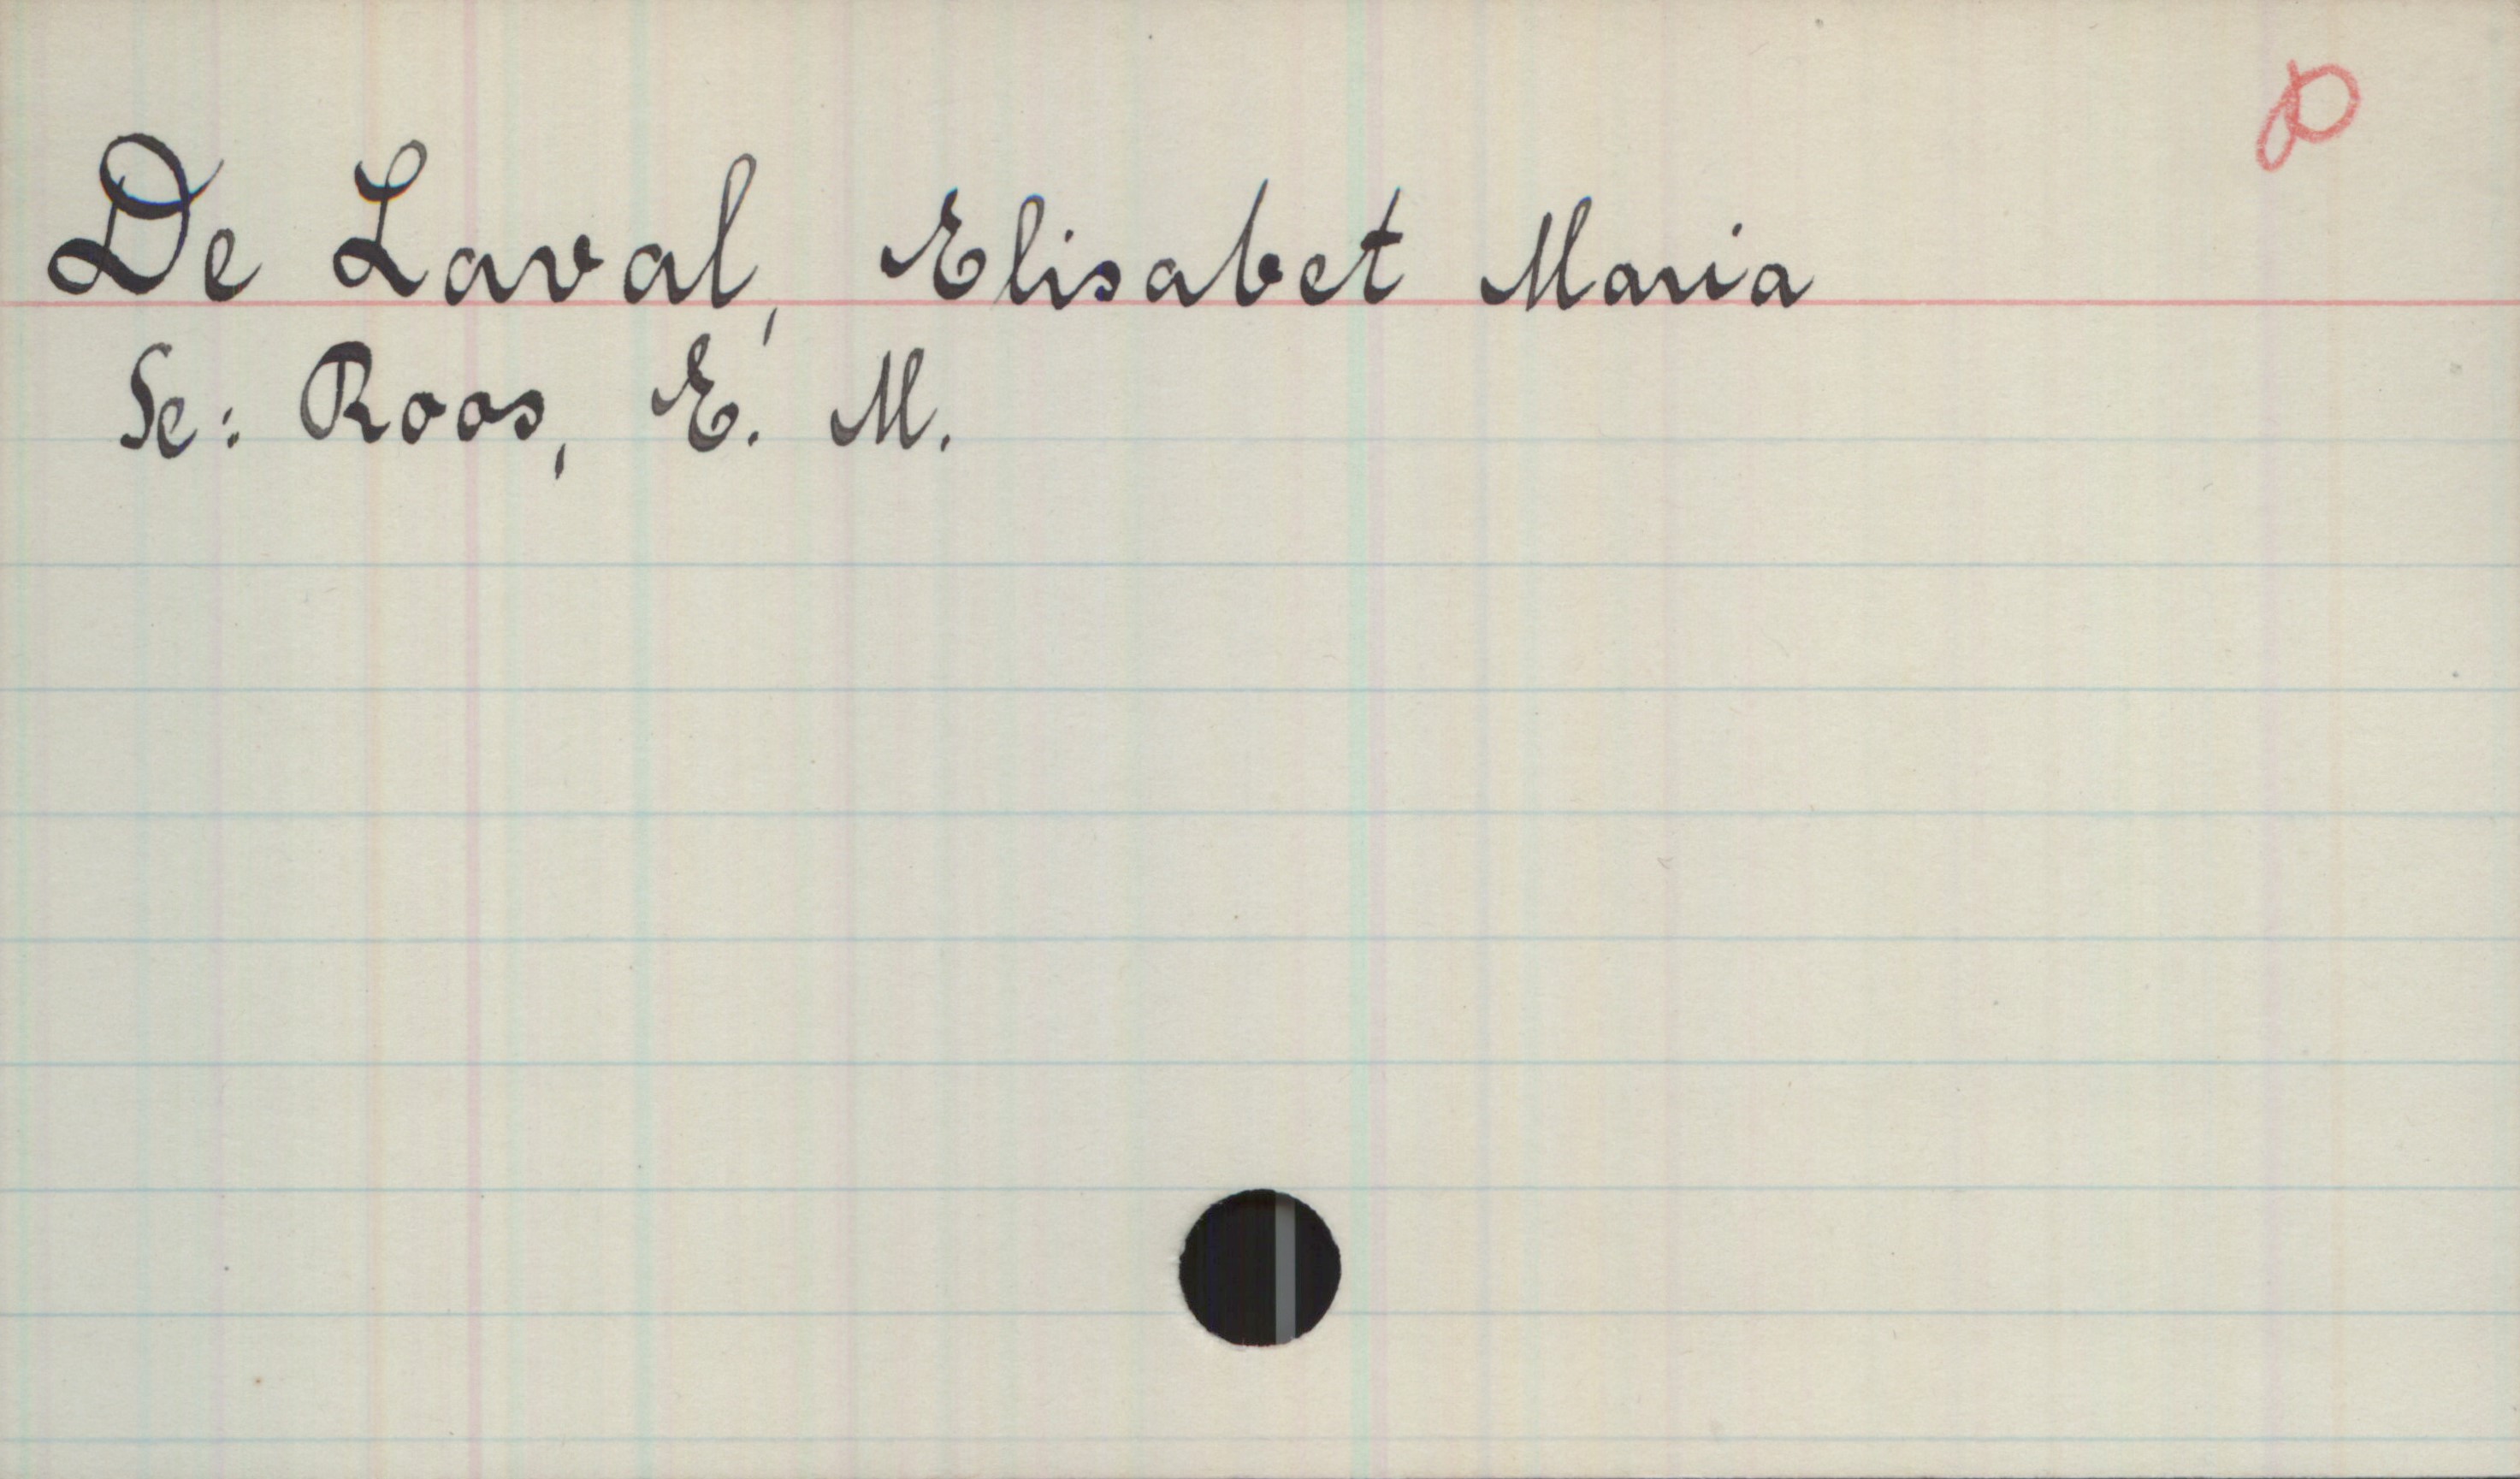 De Laval, Elisabet Maria
Se: Roos, E. M.